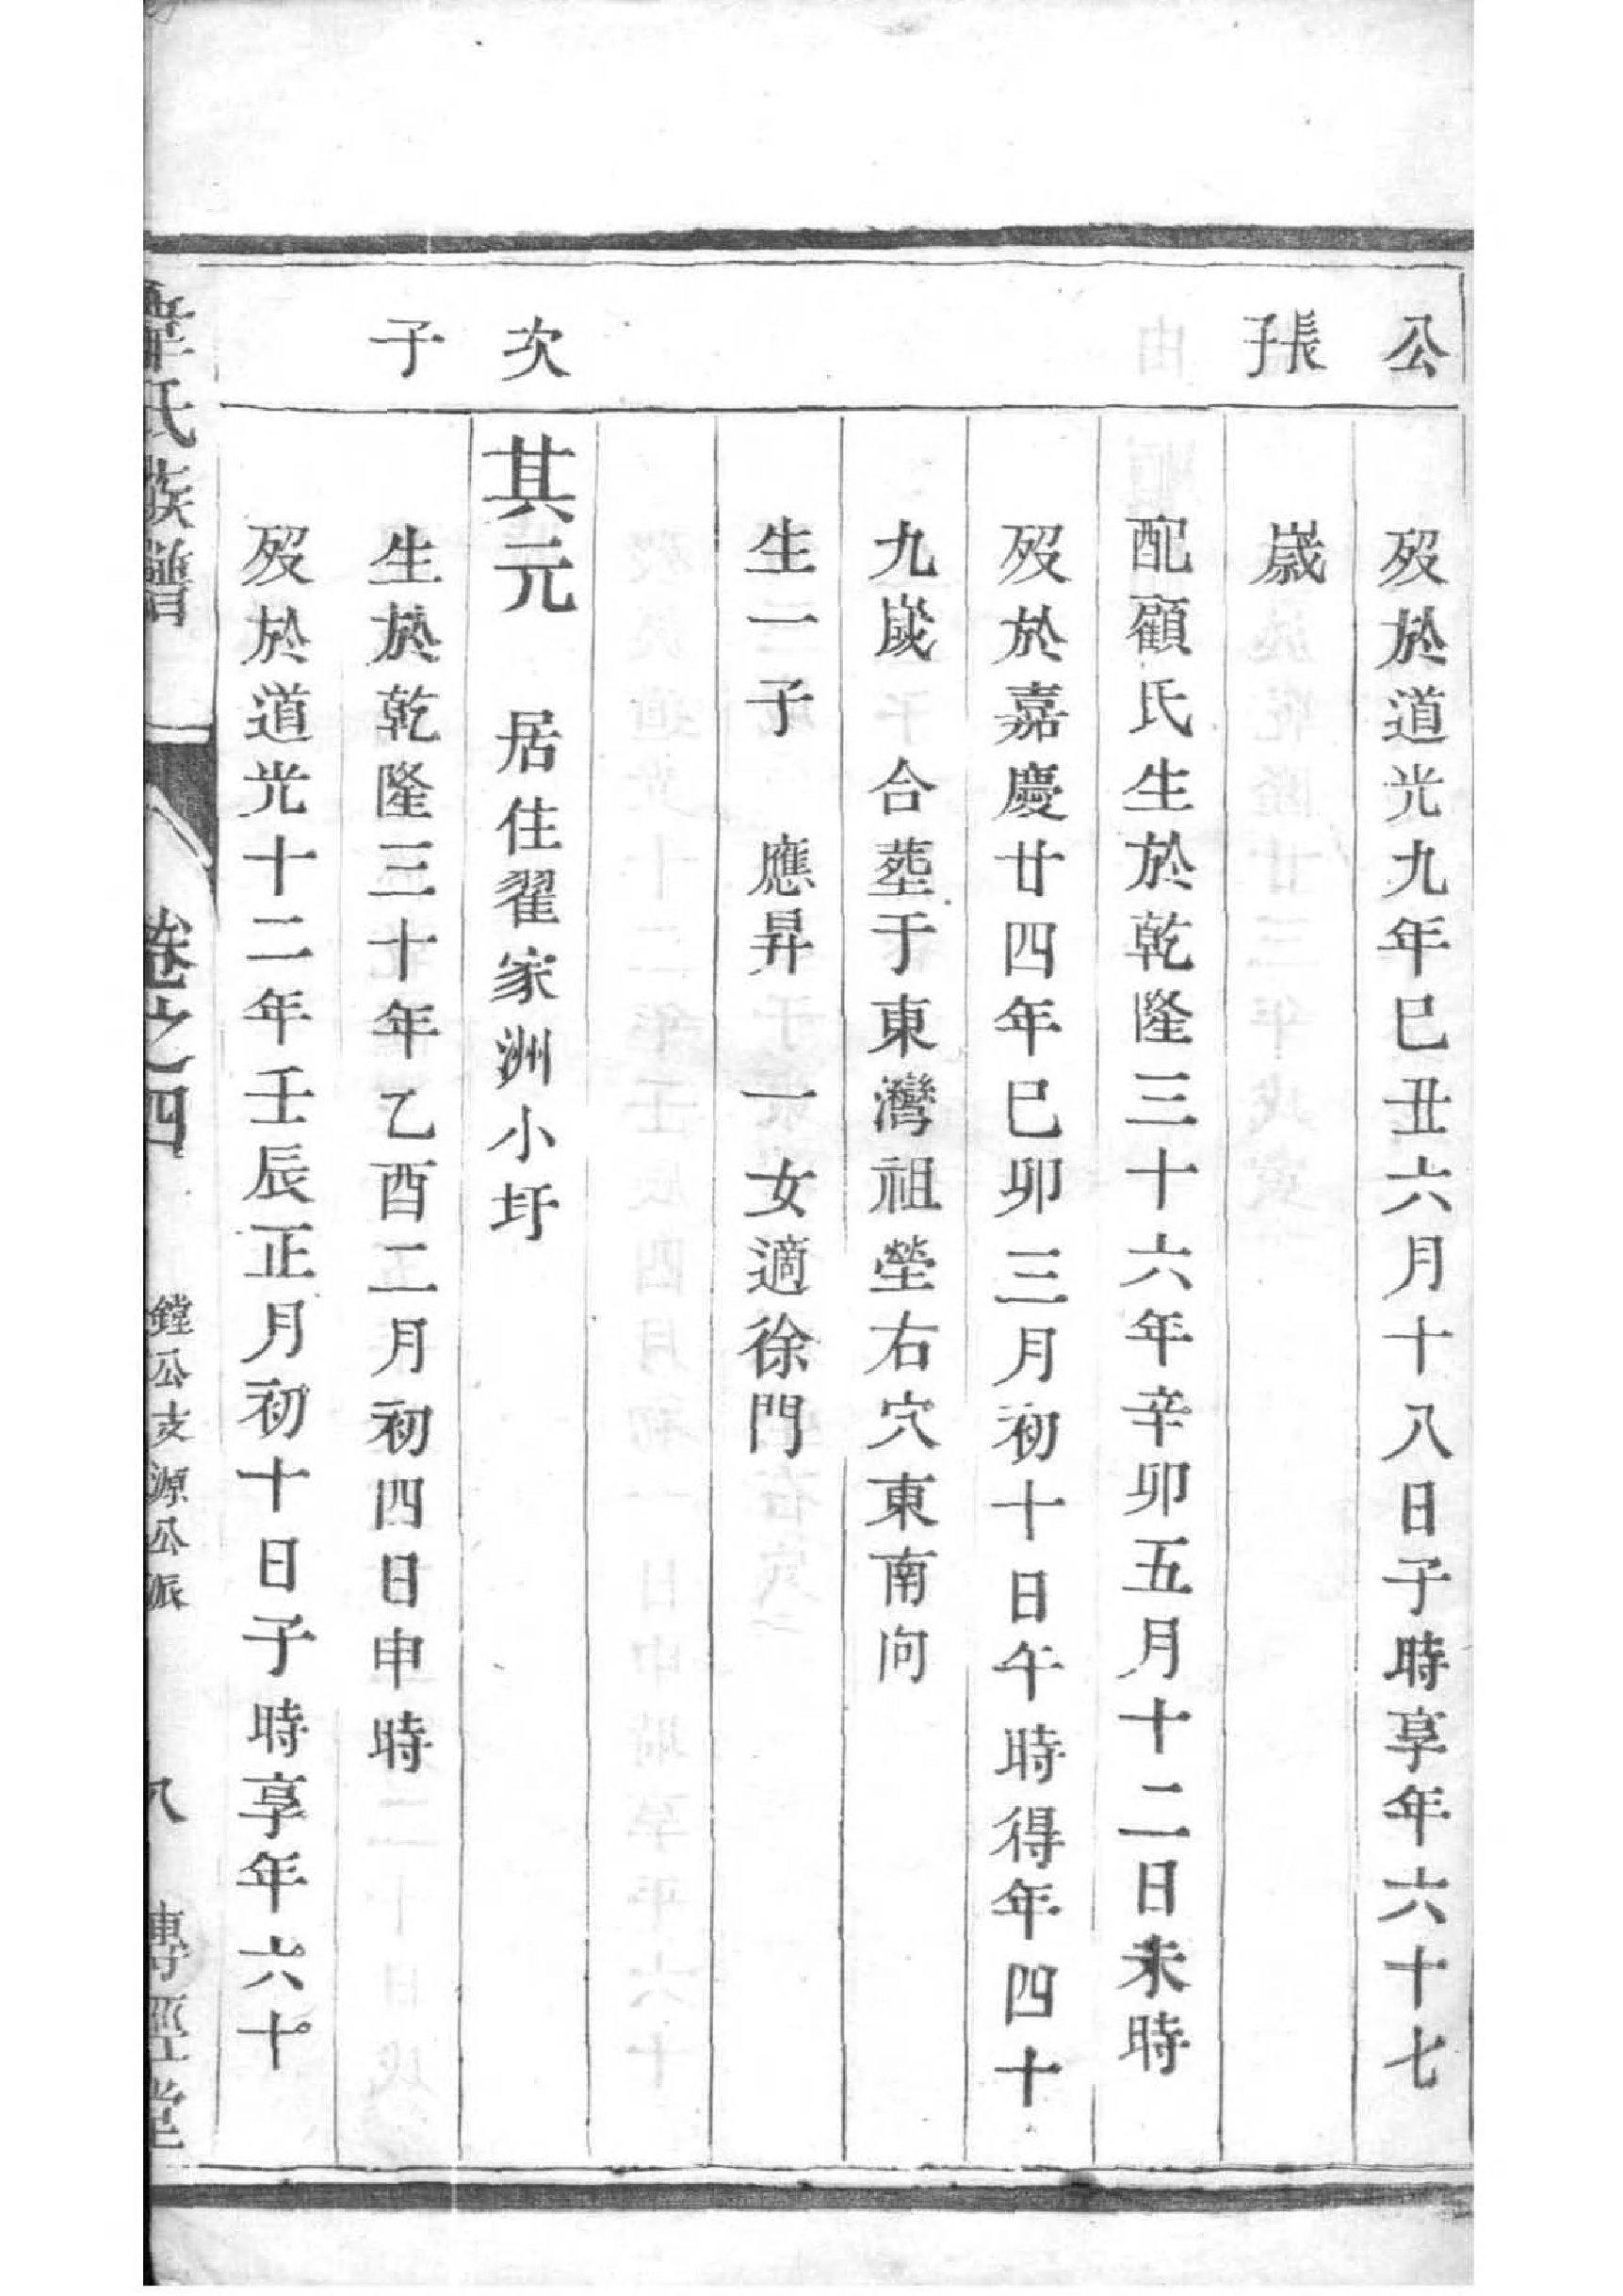 公
張子
次
子
歿於道光九年巳丑六月十八日子時享年六十七
嵗
配顧氏生於乾隆三十六年辛卯五月十二日未時
歿於嘉慶廿四年巳卯三月初十日午時得年四十
九嵗 合塟于東灣祖塋右穴東南向
生一子 應昇 一女適徐門
其元 居住翟家洲小圩
生於乾隆三十年乙酉二月初四日申時
歿於道光十二年壬辰正月初十日子時享年六十
氏族譜
卷之四
鏜公支源公派
八
傳經堂